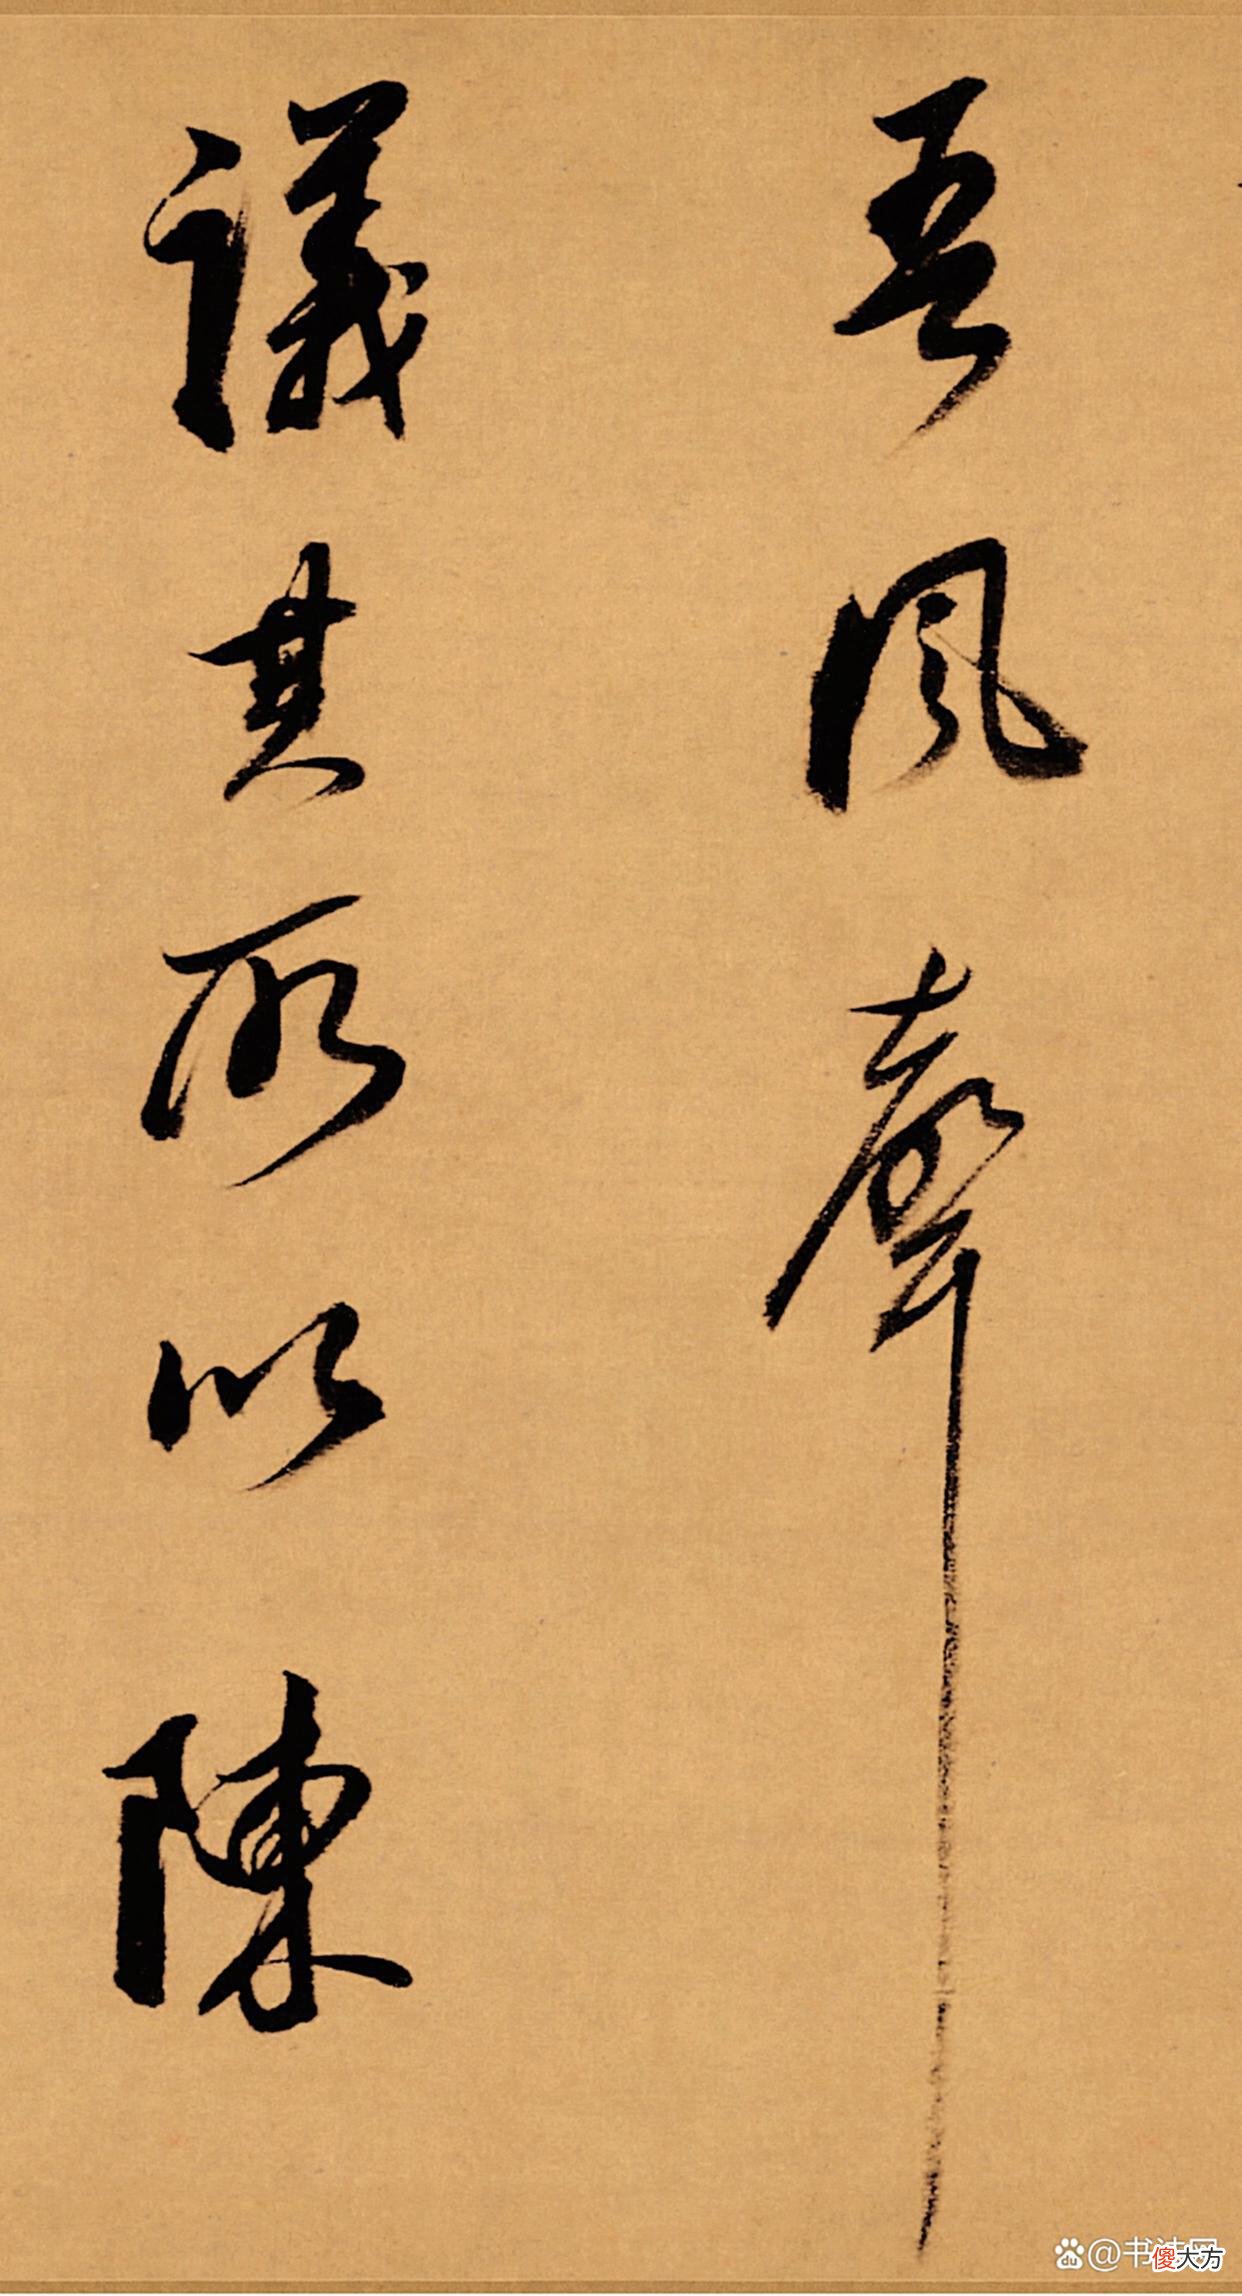 吾風聲
議其所以陳
@书法网
傻大方